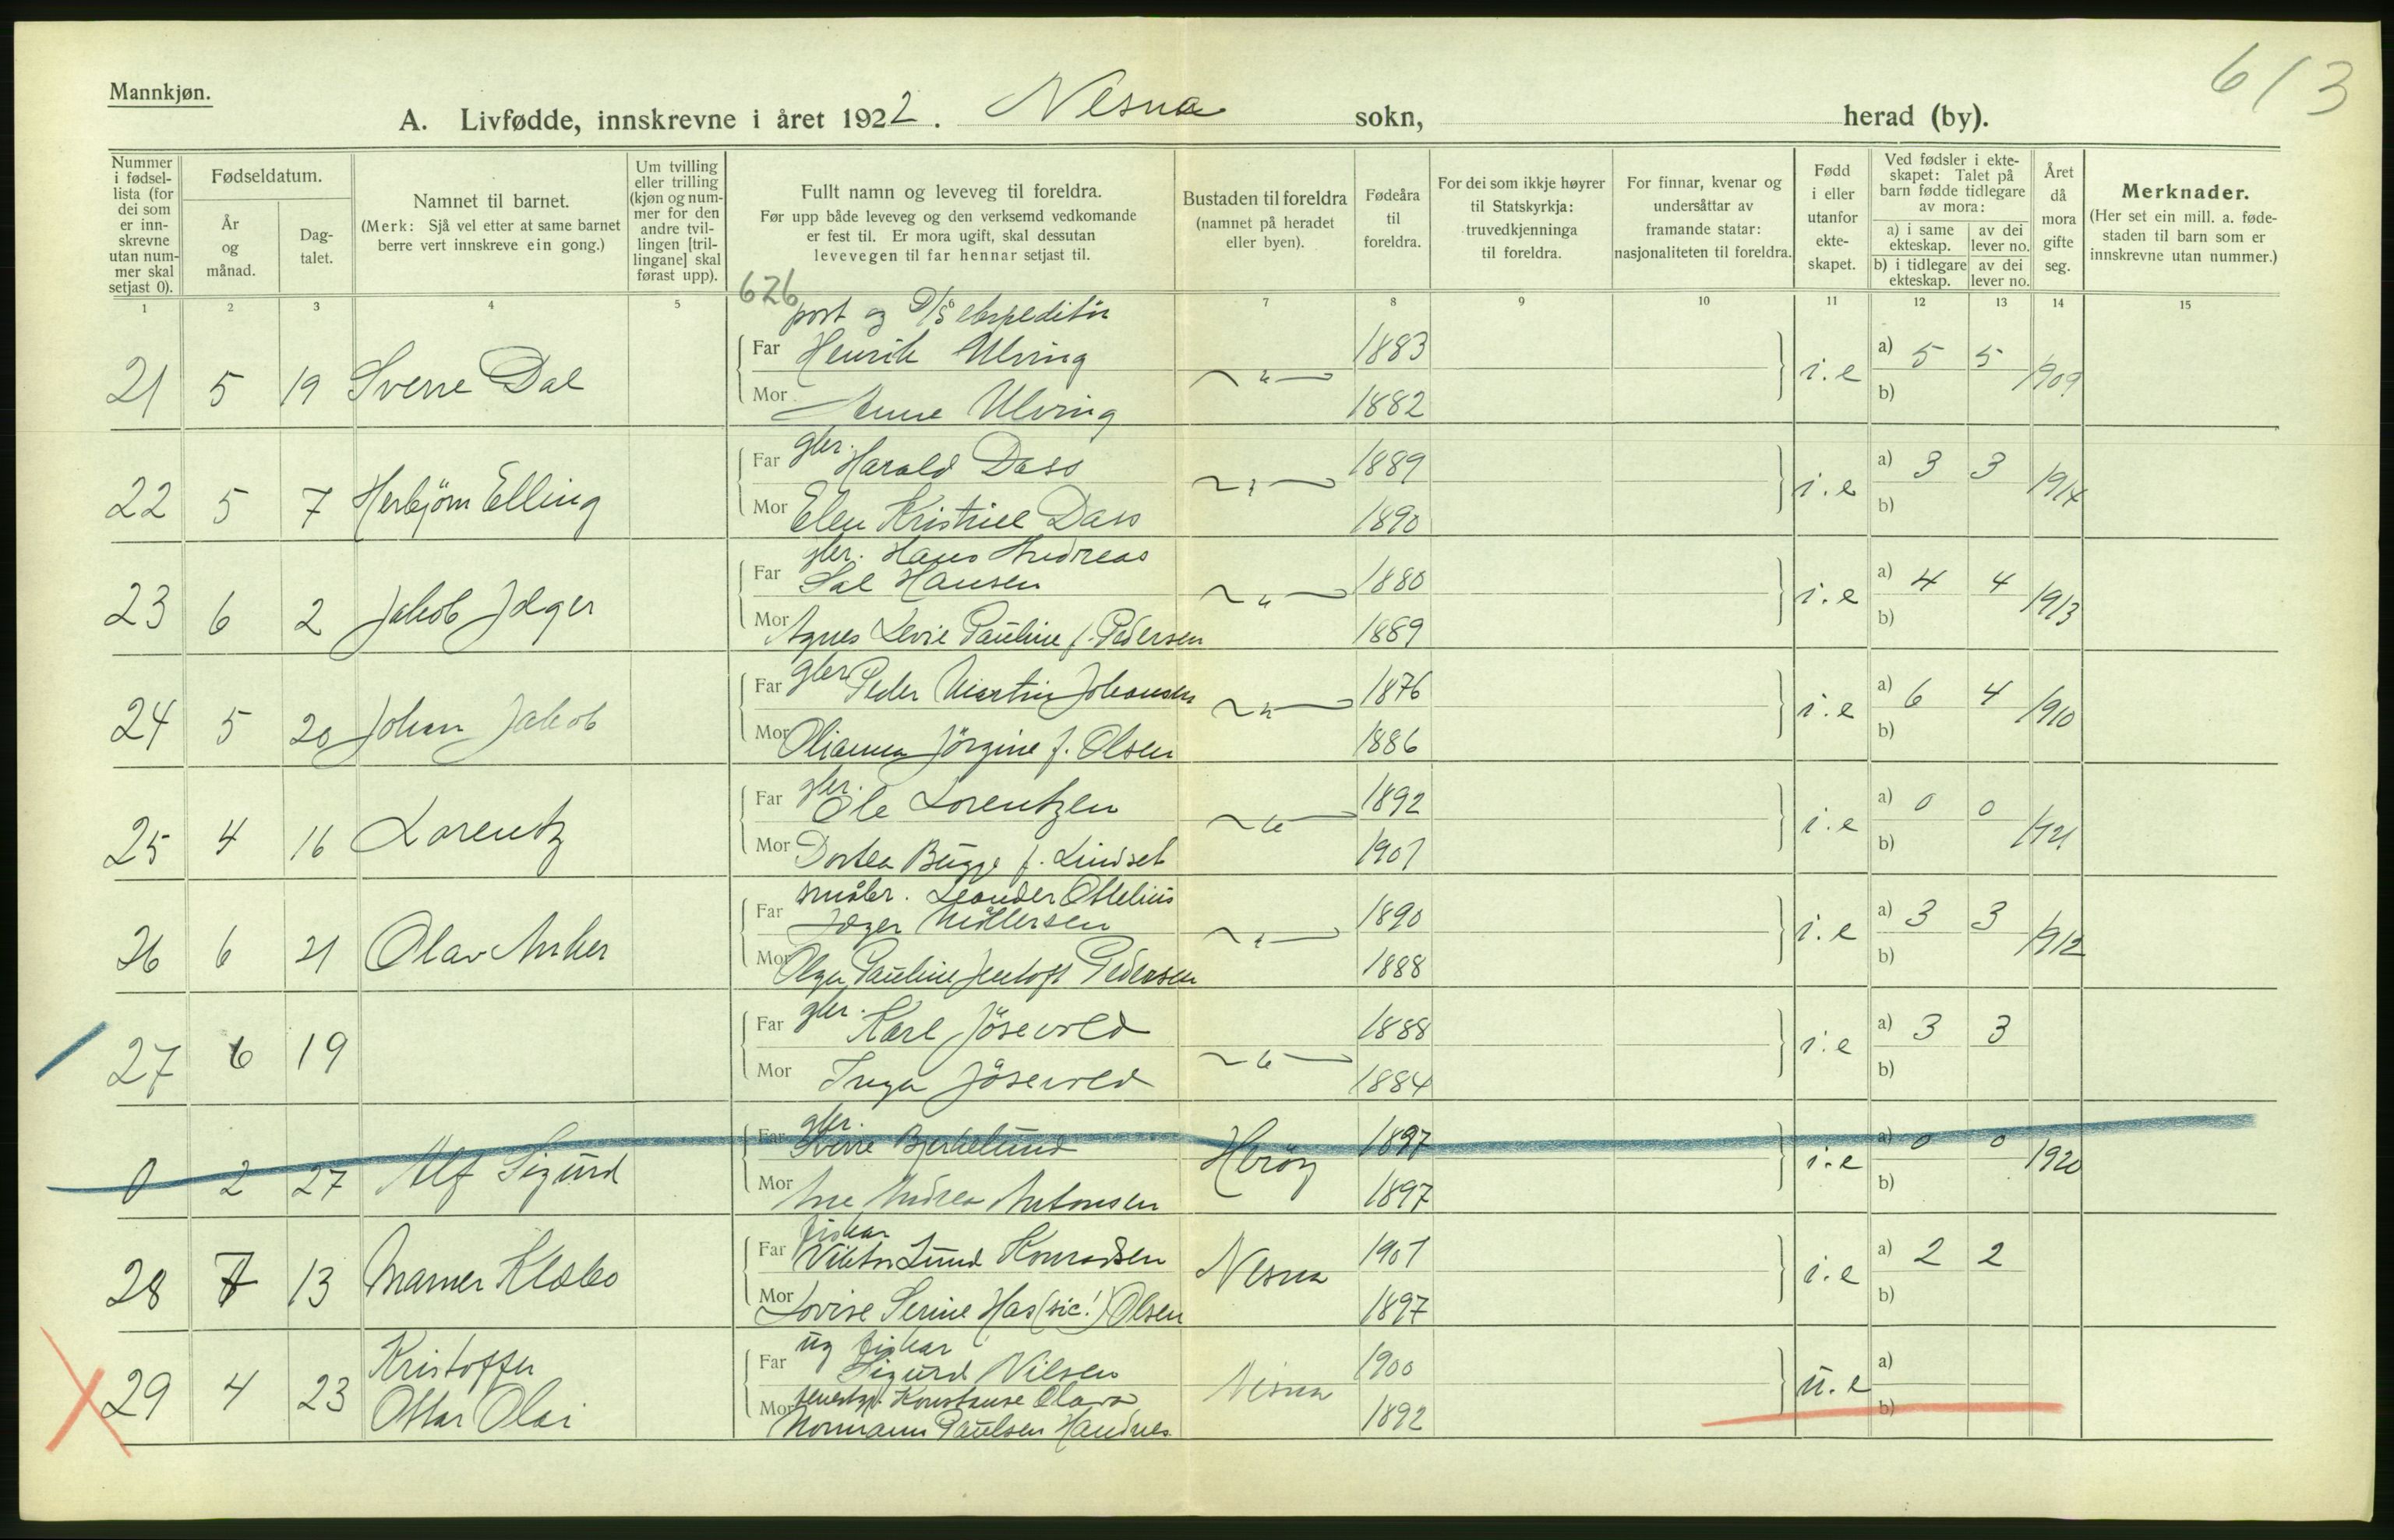 613
Mannkjøn.
A. Livfødde, innskrevne i året 1922. Nesna sokn, herad (by).
Nummer i fødsel-lista (for dei som er inn-skrevne utan num-mer skal setjast 0).
Fødseldatum.
År og månad.
Dag-talet.
Namnet til barnet.
(Merk: Sjå vel etter at same barnet berre vert innskreve ein gong.)
Um tvilling eller trilling (kjøn og num-mer for den andre tvil-lingen [tril-lingane] skal førast upp).
Fullt namn og leveveg til foreldra.
Før upp både leveveg og den verksemd vedkomande er fest til. Er mora ugift, skal dessutan levevegen til far hennar setjast til.
Bustaden til foreldra (namnet på heradet eller byen).
Fødeåra til foreldra.
For dei som ikkje høyrer til Statskyrkja: truvedkjenninga til foreldra.
For finnar, kvenar og undersåttar av framande statar: nasjonaliteten til foreldra.
Fødd i eller utanfor ekte-skapet.
Ved fødsler i ekte-skapet: Talet på barn fødde tidlegare av mora:
a) i same ekteskap. av dei lever no.
b) i tidlegare ekteskap. av dei lever no.
Året då mora gifte seg.
Merknader.
(Her set ein mill. a. føde-staden til barn som er innskrevne utan nummer.)
1 2 3 4 5 7 8 9 10 11 12 13 14 15
626
post og D/S ekspeditör
21 5 19 Sverre Dal Far Henrik Ulving 1883 i.e a) 5 5 1909
Mor Anne Ulving 1882 b)
22 5 7 Herbjörn Elling Far gbr. Harald Dass 1889 i.e a) 3 3 1914
Mor Elen Kristine Dass 1890 b)
gbr. Hans Andreas
23 6 2 Jakob Jæger Far Dal Hansen 1880 i.e a) 4 4 1913
Mor Agnes Levie Pauline f. Pedersen 1889 b)
24 5 20 Johan Jakob Far gbr Peder Martin Johansen 1876 i.e a) 6 4 1910
Mor Olianna Jörgine f. Olsen 1886 b)
25 4 16 Lorentz Far gbr. Ole Lorentzen 1892 i.e a) 0 0 1921
Mor Dortea Bugge f. Lindset 1901 b)
småbr. Leonder Ottelius
26 6 21 Olav Anker Far Jæger Möllersen 1890 i.e a) 3 3 1912
Mor Olga Pauline Jentoft Pedersen 1888 b)
27 6 19 Far gbr. Karl Jösevold 1888 i.e a) 3 3
Mor Inga Jösevold 1884 b)
gbr.
0 2 27 Alf Sigurd Far Sverre Bjerkelund Heröy 1897 i.e a) 0 0 1920
Mor Ane Andrea Antonsen 1897 b)
fiskar
28 7 13 Marner Klæbo Far Viktor Lund Konradsen Nesna 1901 i.e a) 2 2
Mor Lovise Serine Has (sic!) Olsen 1897 b)
ug fiskar
29 4 23 Kristoffer Ottar Olai Far Sigurd Nilsen Nesna 1900 u.e a)
Mor Konstanse Olava
Normann Paulsen Handnes 1892 b)